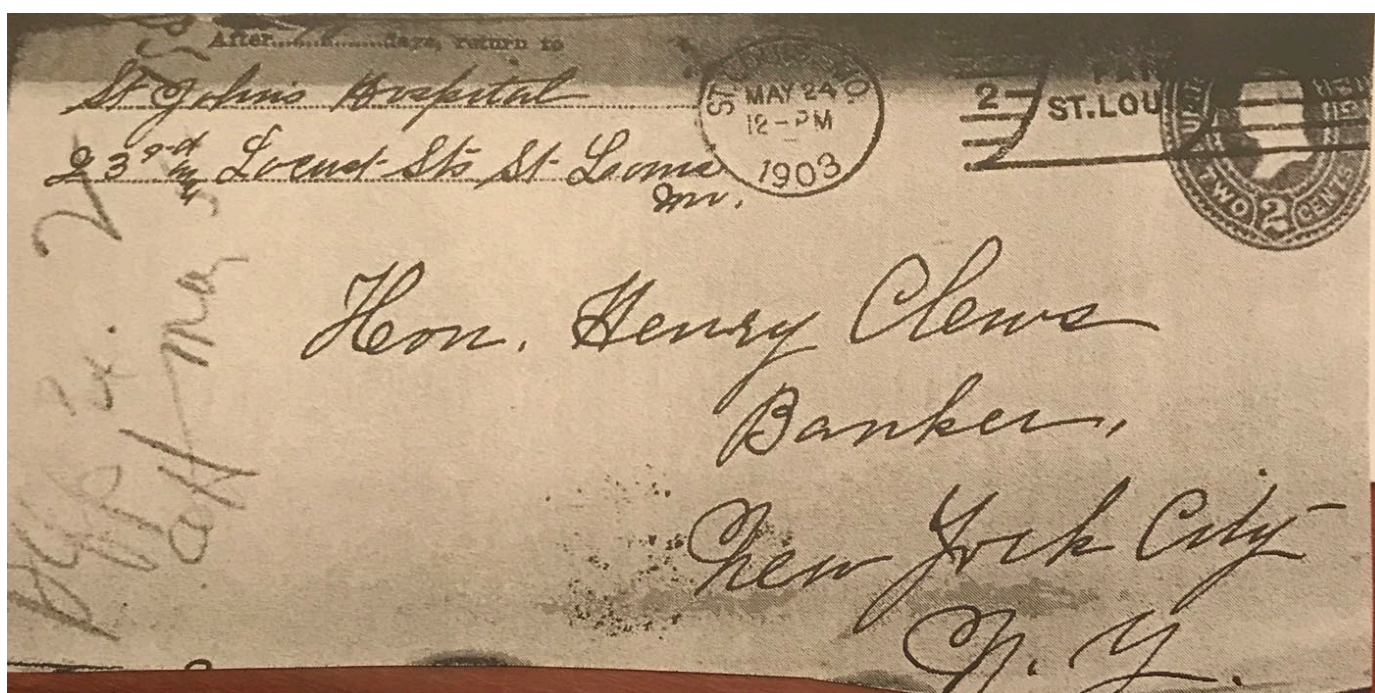 After..........days, return to
St John's Hospital
23rd and Locust Sts St Louis
Mo.
ST. LOUIS, MO.
MAY 24
12-PM
1903
2
ST.LOU
TWO 2 CENTS
Hon. Henry Clews
Banker,
New York City
N. Y.
Ex. 2
May